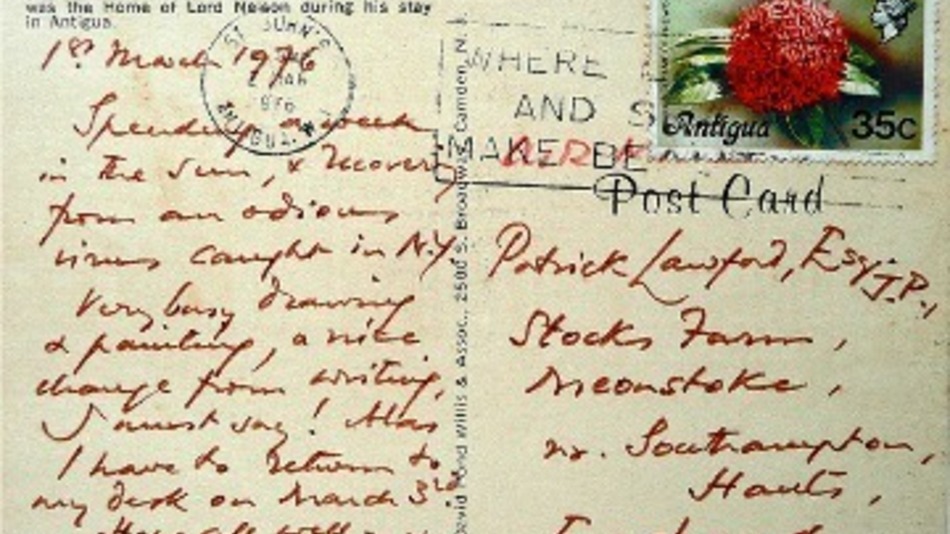 was the Home of Lord Nelson during his stay
in Antigua.
1st March 1976
Spending a week
in the sun, & recovering
from an odious
virus caught in N.Y.
Very busy drawing
& painting, a nice
change from writing,
I must say! Alas
I have to return to
my desk on March 3rd.
Hope all well
ST JOHN'S
MAR
976
ANTIGUA
David Ford Willis & Assoc., 2500 S. Broadway, Camden, N.
WHERE
AND S
MAKE BE
Antigua
35c
Post Card
Patrick Lawford, Esq. J.P.,
Stocks Farm,
Meonstoke,
nr. Southampton,
Hants,
England